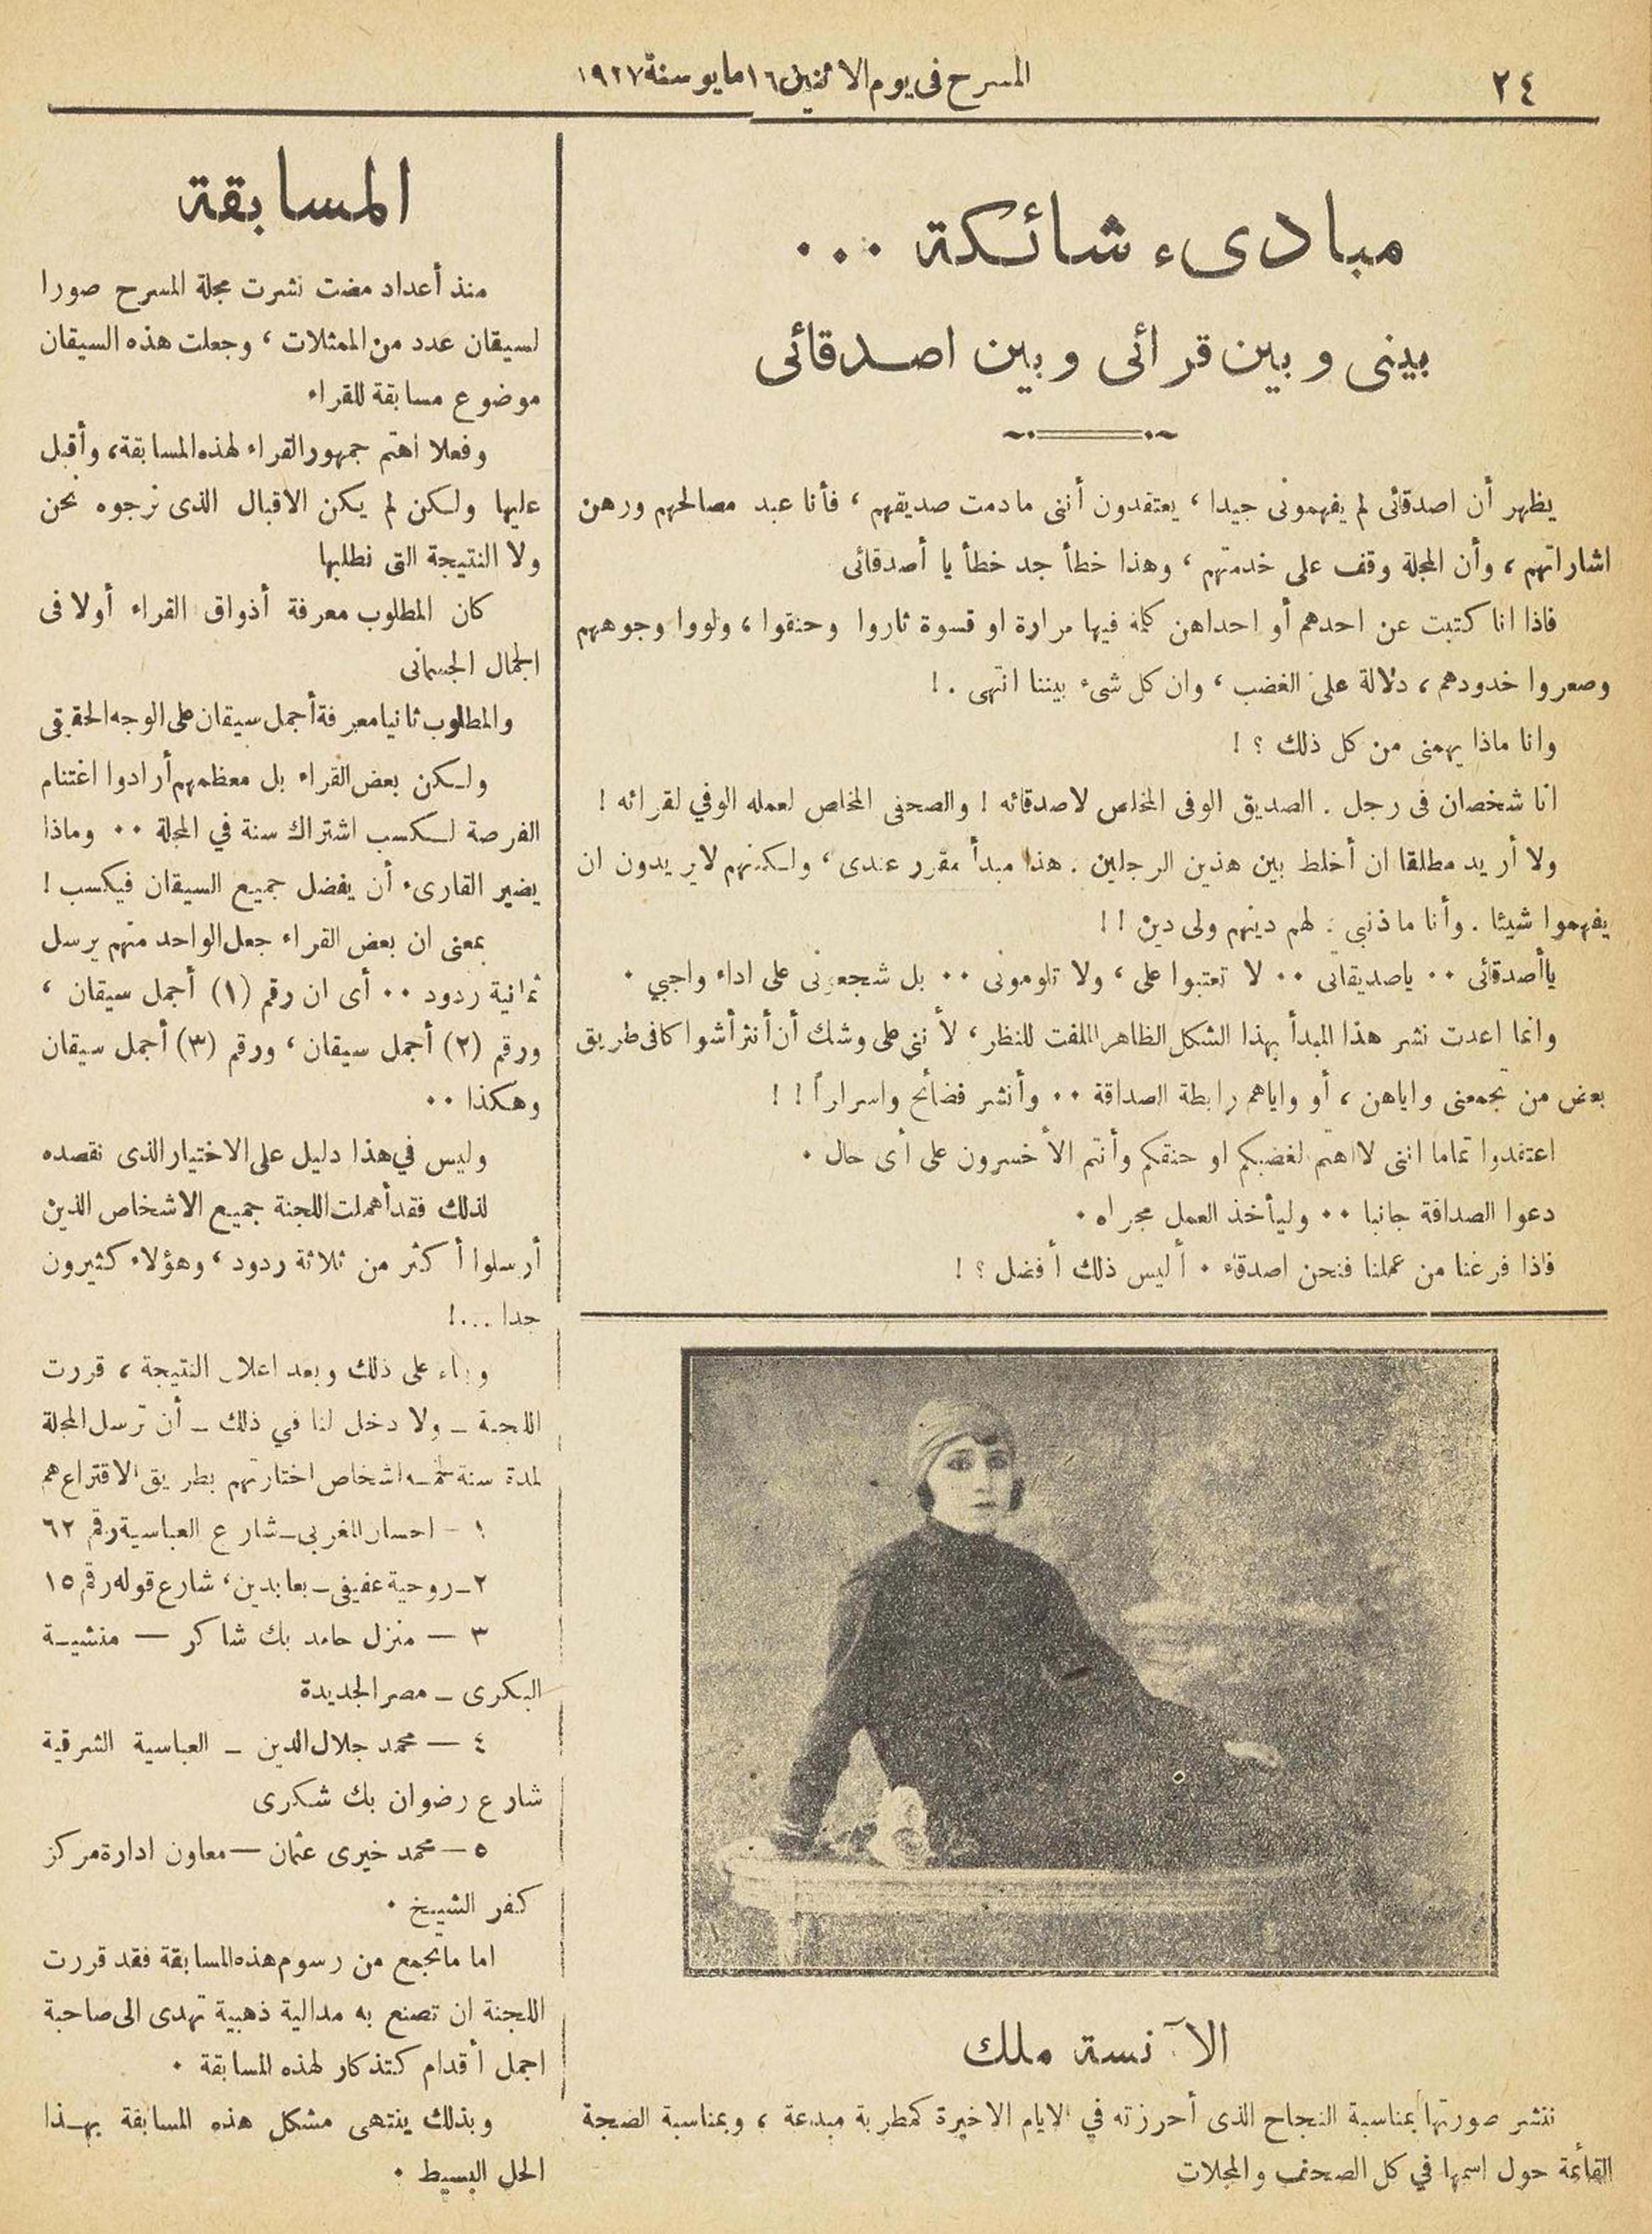 ٢٤
المسرح فى يوم الاثنين ١٦ مايو سنة ١٩٢٧
مبادىء شائكة ...
بينى وبين قرائى وبين اصدقائى
يظهر أن اصدقائى لم يفهمونى جيدا ، يعتقدون أننى مادمت صديقهم ، فأنا عبد مصالحهم ورهن
اشاراتهم ، وأن المجلة وقف على خدمتهم ، وهذا خطأ جد خطأ يا أصدقائى
فاذا انا كتبت عن احدهم أو احداهن كلمة فيها مرارة او قسوة ثاروا وحنقوا ، ولووا وجوههم
وصعروا خدودهم ، دلالة على الغضب ، وان كل شىء بيننا انتهى . !
وانا ماذا يهمنى من كل ذلك ؟ !
انا شخصان فى رجل . الصديق الوفى المخلص لاصدقائه ! والصحفى المخلص لعمله الوفي لقرائه !
ولا أريد مطلقا ان أخلط بين هذين الرجلين . هذا مبدأ مقرر عندى ، ولكنهم لايريدون ان
يفهموا شيئا . وأنا ماذنبي : لهم دينهم ولى دين ! !
ياأصدقائى .. ياصديقاتى .. لا تعتبوا على ، ولا تلومونى .. بل شجعونى على اداء واجبي .
وانما اعدت نشر هذا المبدأ بهذا الشكل الظاهر الملفت للنظر ، لأننى على وشك أن أنثر أشواكا فى طريق
بعض من تجمعنى واياهن ، أو واياهم رابطة الصداقة .. وأنشر فضائح واسراراً ! !
اعتقدوا تماما اننى لااهتم لغضبكم او حنقكم وأنتم الأخسرون على أى حال .
دعوا الصداقة جانبا .. وليأخذ العمل مجراه .
فاذا فرغنا من عملنا فنحن اصدقاء . أليس ذلك أفضل ؟ !
الآنسة ملك
ننشر صورتها بمناسبة النجاح الذى أحرزته في الايام الاخيرة كمطربة مبدعة ، وبمناسبة الضجة
القائمة حول اسمها في كل الصحف والمجلات
المسابقة
منذ أعداد مضت نشرت مجلة المسرح صورا
لسيقان عدد من الممثلات ، وجعلت هذه السيقان
موضوع مسابقة للقراء
وفعلا اهتم جمهور القراء لهذه المسابقة ، وأقبل
عليها ولكن لم يكن الاقبال الذى نرجوه نحن
ولا النتيجة التى نطلبها
كان المطلوب معرفة أذواق القراء أولا فى
الجمال الجسمانى
والمطلوب ثانيا معرفة أجمل سيقان على الوجه الحقيقى
ولكن بعض القراء بل معظمهم أرادوا اغتنام
الفرصة لكسب اشتراك سنة في المجلة .. وماذا
يضير القارىء أن يفضل جميع السيقان فيكسب !
بمعنى ان بعض القراء جعل الواحد منهم يرسل
ثمانية ردود .. أى ان رقم (١) أجمل سيقان ،
ورقم (٢) أجمل سيقان ، ورقم (٣) أجمل سيقان
وهكذا ..
وليس في هذا دليل على الاختيار الذى نقصده
لذلك فقد أهملت اللجنة جميع الاشخاص الذين
أرسلوا أكثر من ثلاثة ردود ، وهؤلاء كثيرون
جدا ...!
وبناء على ذلك وبعد اعلان النتيجة ، قررت
اللجنة ـ ولا دخل لنا في ذلك ـ أن ترسل المجلة
لمدة سنة لخمسه اشخاص اختارتهم بطريق الاقتراع هم
١ - احسان المغربى ـ شارع العباسية رقم ٦٢
٢ ـ روحية عفيفى ـ بعابدين ، شارع قوله رقم ١٥
٣ — منزل حامد بك شاكر — منشية
البكرى ـ مصر الجديدة
٤ — محمد جلال الدين ـ العباسية الشرقية
شارع رضوان بك شكرى
٥ — محمد خيرى عثمان — معاون ادارة مركز
كفر الشيخ .
اما ماتجمع من رسوم هذه المسابقة فقد قررت
اللجنة ان تصنع به مدالية ذهبية تهدى الى صاحبة
اجمل أقدام كتذكار لهذه المسابقة .
وبذلك ينتهى مشكل هذه المسابقة بهذا
الحل البسيط .